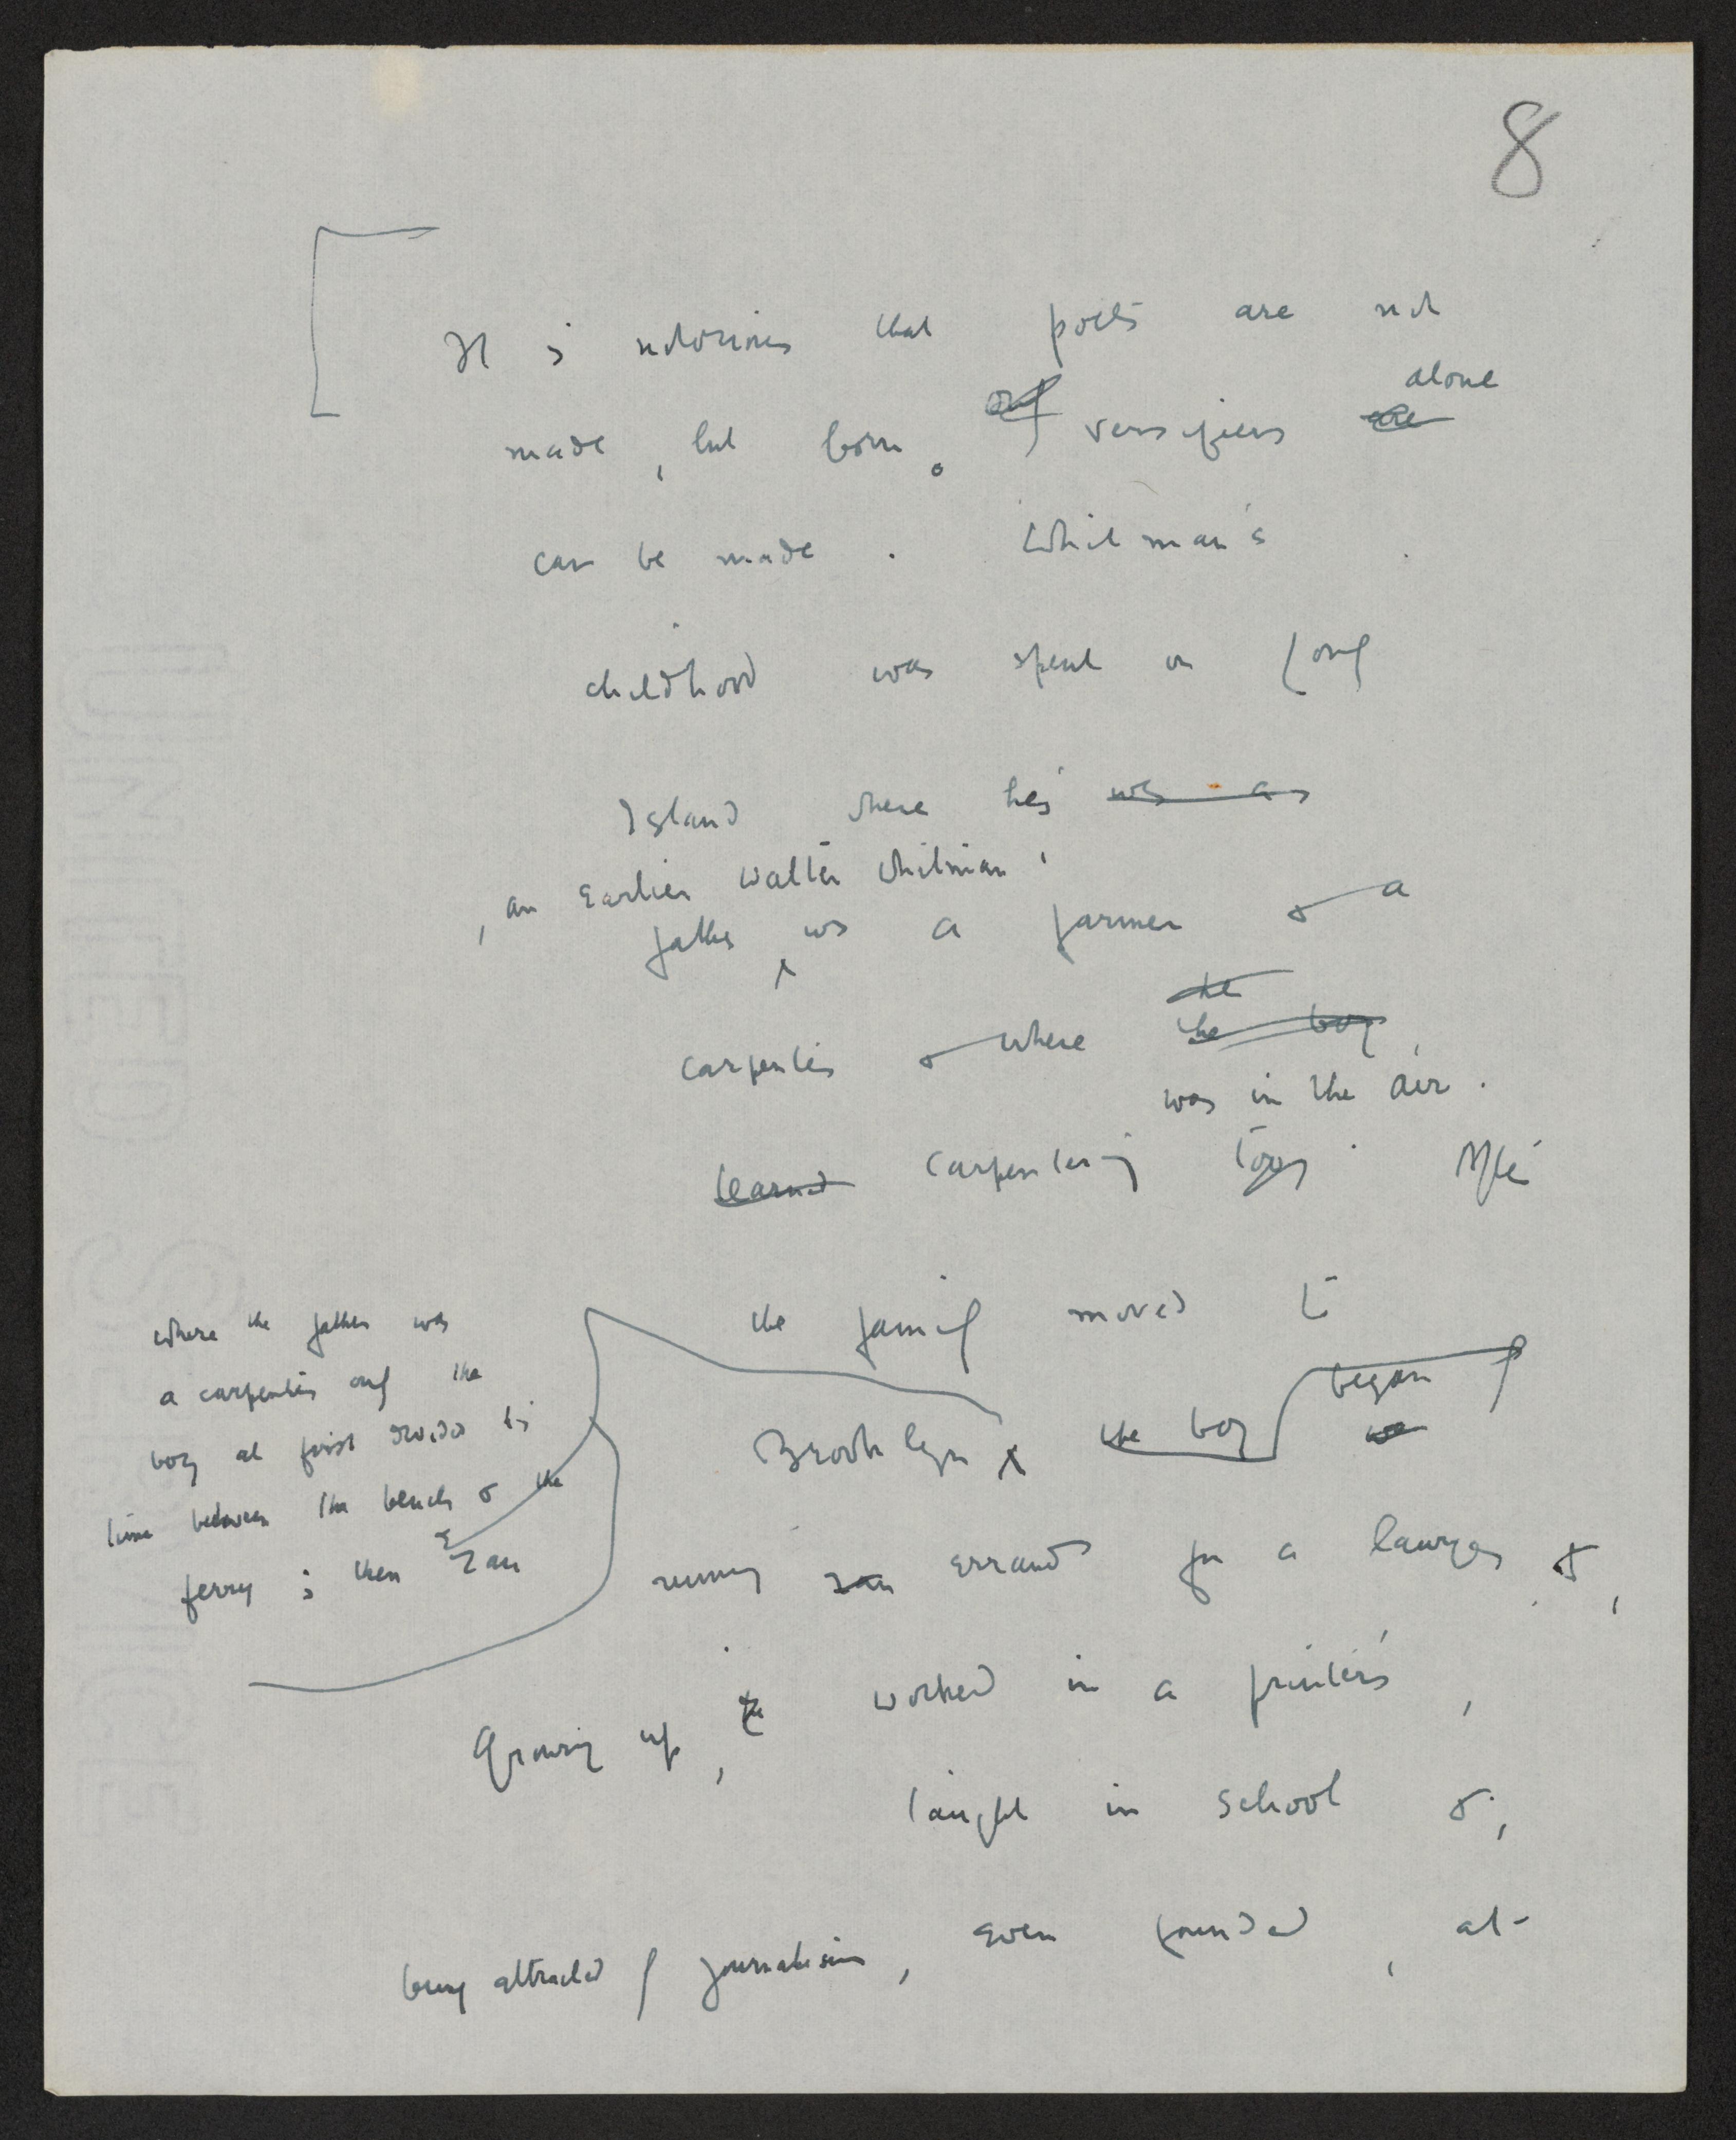 8
It is notorious that poets are not
alone
made, but born. only versifiers are
can be made. Whitman's
childhood was spent on Long
Island where his was a
, an earlier Walter Whitman,
father was a farmer & a
he
carpenter & where the boy
was in the air.
learned carpentering too. After
the family moved to
where the father was
a carpenter only the
boy at first divided his
time between the bench & the
ferry; then ran
began by
Brooklyn the boy was
running ran errands for a lawyer &,
Growing up, he worked in a printer's,
taught in school &,
being attracted by journalism, even founded, at-
UNITED STATES SERVICE